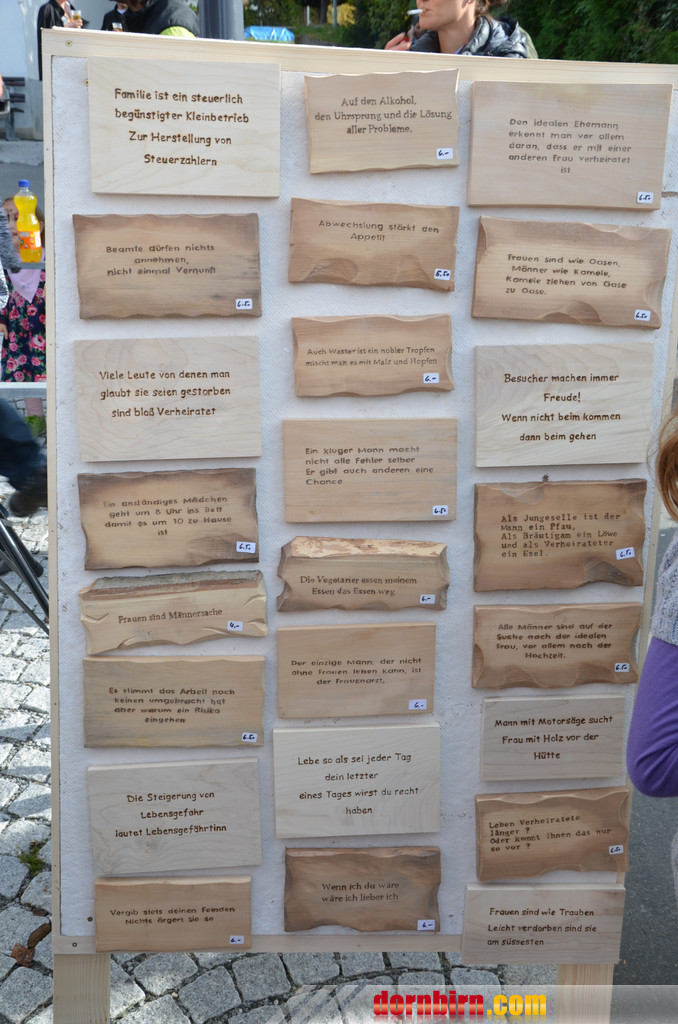 Familie ist ein steuerlich
begünstigter Kleinbetrieb
Zur Herstellung von
Steuerzahlern
Beamte dürfen nichts
annehmen,
nicht einmal Vernunft
6.50
Viele Leute von denen man
glaubt sie seien gestorben
sind bloß Verheiratet
Ein anständiges Mädchen
geht um 8 Uhr ins Bett
damit es um 10 zu Hause
ist
6.50
Frauen sind Männersache
4.-
Es stimmt das Arbeit noch
keinen umgebracht hat
aber warum ein Risiko
eingehen
6.50
Die Steigerung von
Lebensgefahr
lautet Lebensgefährtinn
Vergib stets deinen Feinden
Nichts ärgert sie so
6.-
Auf den Alkohol,
den Uhrsprung und die Lösung
aller Probleme.
6.-
Abwechslung stärkt den
Appetit
5.50
Auch Wasser ist ein nobler Tropfen
mischt man es mit Malz und Hopfen
6.-
Ein kluger Mann macht
nicht alle Fehler selber
Er gibt auch anderen eine
Chance
6.50
Die Vegetarier essen meinem
Essen das Essen weg
6.-
Der einzige Mann, der nicht
ohne Frauen leben kann, ist
der Frauenarzt.
6.-
Lebe so als sei jeder Tag
dein letzter
eines Tages wirst du recht
haben
Wenn ich du wäre
wäre ich lieber ich
6.-
Den idealen Ehemann
erkennt man vor allem
daran, dass er mit einer
anderen Frau verheiratet
ist
6.50
Frauen sind wie Oasen,
Männer wie Kamele,
Kamele ziehen von Oase
zu Oase.
6.50
Besucher machen immer
Freude!
Wenn nicht beim kommen
dann beim gehen
Als Jungeselle ist der
Mann ein Pfau,
Als Bräutigam ein Löwe
und als Verheirateter
ein Esel.
6.50
Alle Männer sind auf der
Suche nach der idealen
Frau, vor allem nach der
Hochzeit.
6.50
Mann mit Motorsäge sucht
Frau mit Holz vor der
Hütte
Leben Verheiratete
länger ?
Oder kommt Ihnen das nur
so vor ?
6.50
Frauen sind wie Trauben
Leicht verdorben sind sie
am süssesten
dornbirn.com